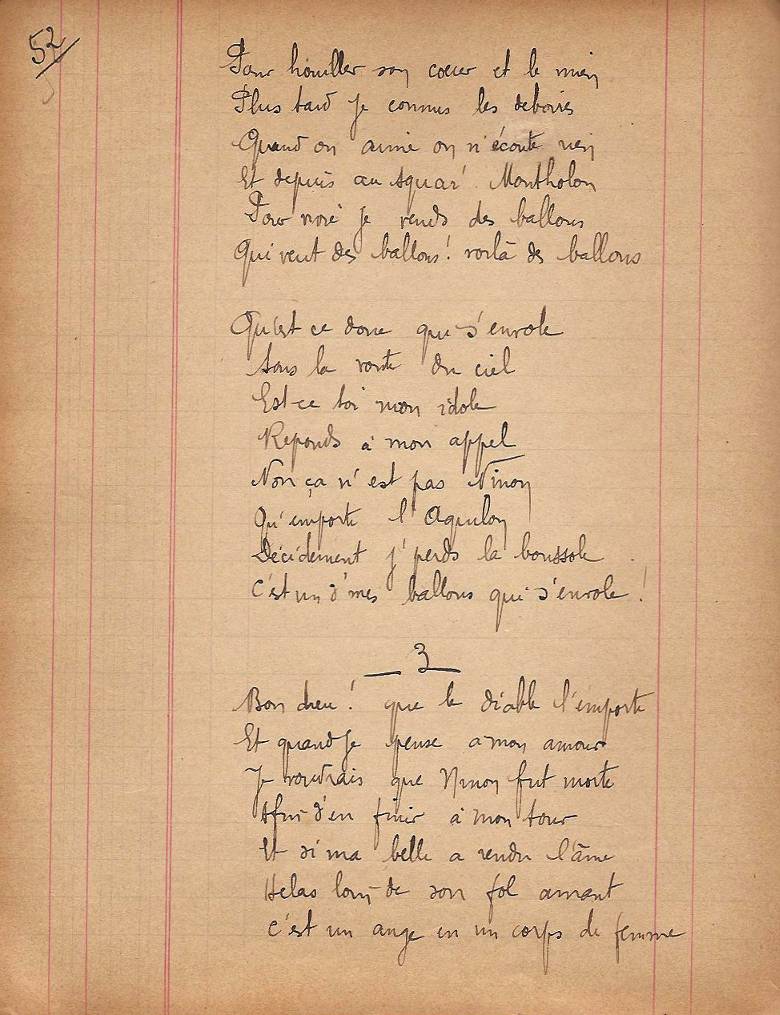 52
Pour houiller son cœur et le mien
Plus tard je connus les deboires
Quand on aime on n'écoute rien
Et depuis au squar' Montholon
Pour vivre je vends des ballons
Qui veut des ballons! voilà des ballons
Qu'est ce donc qui s'envole
Sous la voute du ciel
Est-ce toi mon idole
Reponds à mon appel
Non ça n'est pas Ninon
Qu'emporte l'Aquilon
Décidement j'perds la boussole
C'est un d'mes ballons qui s'envole!
3
Bon dieu! que le diable l'emporte
Et quand je pense a mon amour
Je voudrais que Ninon fut morte
Afin d'en finir à mon tour
Et si ma belle a rendu l'âme
Helas loin de son fol amant
C'est un ange en un corps de femme